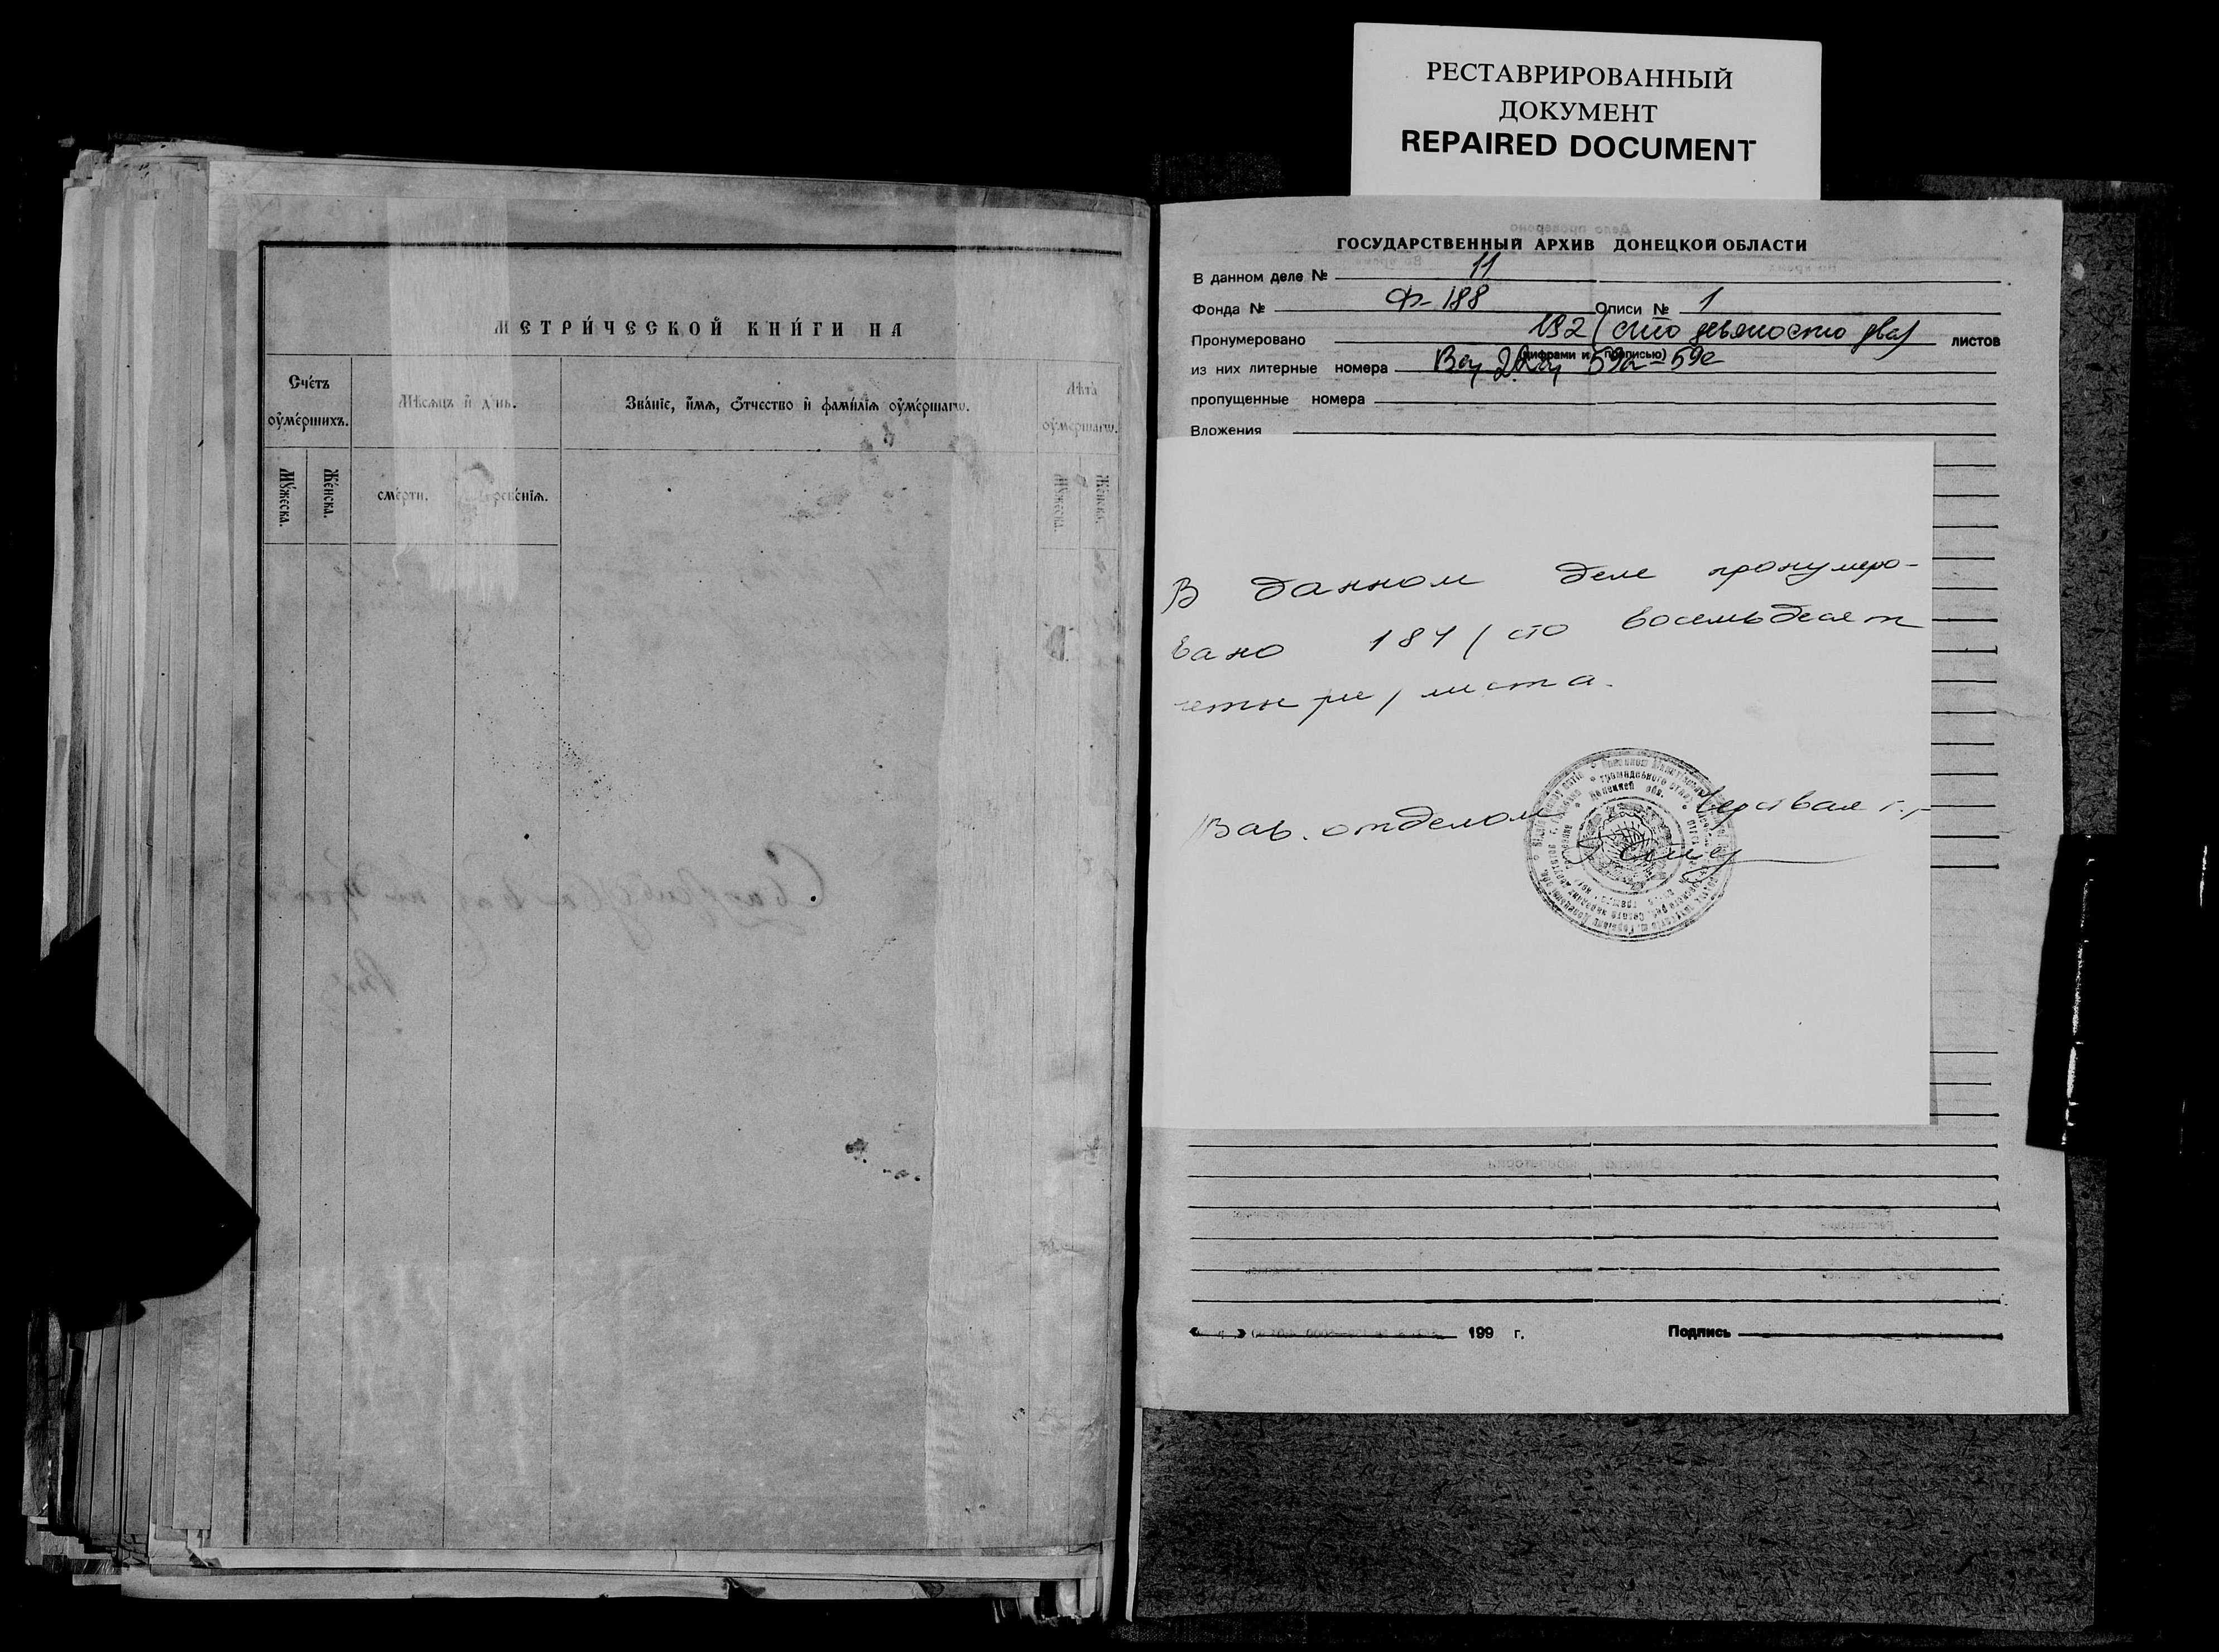 РЕСТАВРИРОВАННЫЙ
ДОКУМЕНТ
REPAIRED DOCUMENT
МЕТРИ́ЧЕСКОЙ КНИ́ГИ НА
Сче́тъ
ᲂу҆ме́ршихъ.
Мѣ́сѧцъ и҆ де́нь.
Зва́нїе, и҆́мѧ, ѻ҆́тчество и҆ фамі́лїѧ ᲂу҆ме́ршагѡ.
Лѣта̀
ᲂу҆ме́ршагѡ.
Мꙋ́жеска.
Же́нска.
сме́рти.
Мꙋ́жеска.
Же́нска.
ГОСУДАРСТВЕННЫЙ АРХИВ ДОНЕЦКОЙ ОБЛАСТИ
В данном деле № 11
Фонда № Ф-188 Описи № 1
Пронумеровано 192 (сто девяносто два) листов
(цифрами и прописью)
из них литерные номера 59а-59е
пропущенные номера
Вложения
В данном деле пронумеро-
вано 184 / сто восемьдесят
четыре / листа.
Зав. отделом
199 г.
Подпись